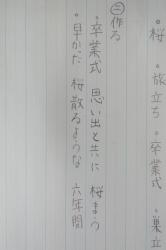 。桜 。旅立ち 。卒業式 。巣立
㊁作る
。卒業式 思い出と共に 桜まう
。早かった 桜散るような 六年間